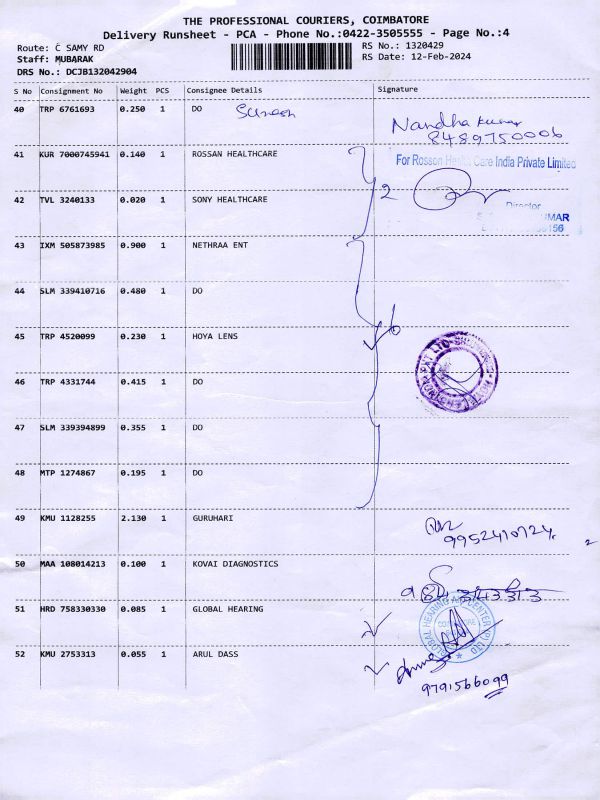 THE PROFESSIONAL COURIERS, COIMBATORE
Delivery Runsheet - PCA - Phone No.:0422-3505555 - Page No.:4
Route: C SAMY RD
RS No.: 1320429
Staff: MUBARAK
RS Date: 12-Feb-2024
DRS No.: DCJB132042904
S No Consignment No Weight PCS Consignee Details Signature
40 TRP 6761693 0.250 1 DO Suresh
Nandha kumar
8489750006
41 KUR 7000745941 0.140 1 ROSSAN HEALTHCARE
For Rosson Health Care India Private Limited
42 TVL 3240133 0.020 1 SONY HEALTHCARE 2
Director
43 IXM 505873985 0.900 1 NETHRAA ENT
44 SLM 339410716 0.480 1 DO
6
45 TRP 4520099 0.230 1 HOYA LENS
46 TRP 4331744 0.415 1 DO
47 SLM 339394899 0.355 1 DO
48 MTP 1274867 0.195 1 DO
49 KMU 1128255 2.130 1 GURUHARI
9952410724
2
50 MAA 108014213 0.100 1 KOVAI DIAGNOSTICS
51 HRD 758330330 0.085 1 GLOBAL HEARING
GLOBAL HEARING AID CENTER (P) LTD
52 KMU 2753313 0.055 1 ARUL DASS
9791566099